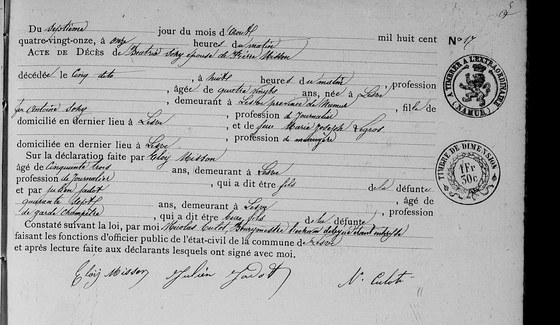 Du septième jour du mois d'août mil huit cent
quatre-vingt-onze, à onze heures du matin
N° 17
ACTE DE DÉCÈS de Béatrix Sohy épouse de Pierre Misson
décédée le Cinq dito, à huit heures du matin, profession
, âgée de quatre vingts ans, née à Lesve
, demeurant à Lesve province de Namur, fille de
feu Antoine Sohy, profession de journalier
domicilié en dernier lieu à Lesve et de feue Marie Joseph Legros
, profession de ménagère
domiciliée en dernier lieu à Lesve
Sur la déclaration faite par Eloy Misson
âgé de cinquante trois ans, demeurant à Lesve
profession de Journalier, qui a dit être fils de la défunte
et par Julien Jadot, âgé de
quarante sept ans, demeurant à Lesve profession
de garde champêtre, qui a dit être fils de la défunte
Constaté suivant la loi, par moi Nicolas Culot Bourgmestre
faisant les fonctions d'officier public de l'état-civil de la commune de Lesve
et après lecture faite aux déclarants lesquels ont signé avec moi.
Eloy Misson Julien Jadot N. Culot
TIMBRE A L'EXTRAORDINAIRE
(NAMUR)
TIMBRE DE DIMENSION
1 Fr
30 c